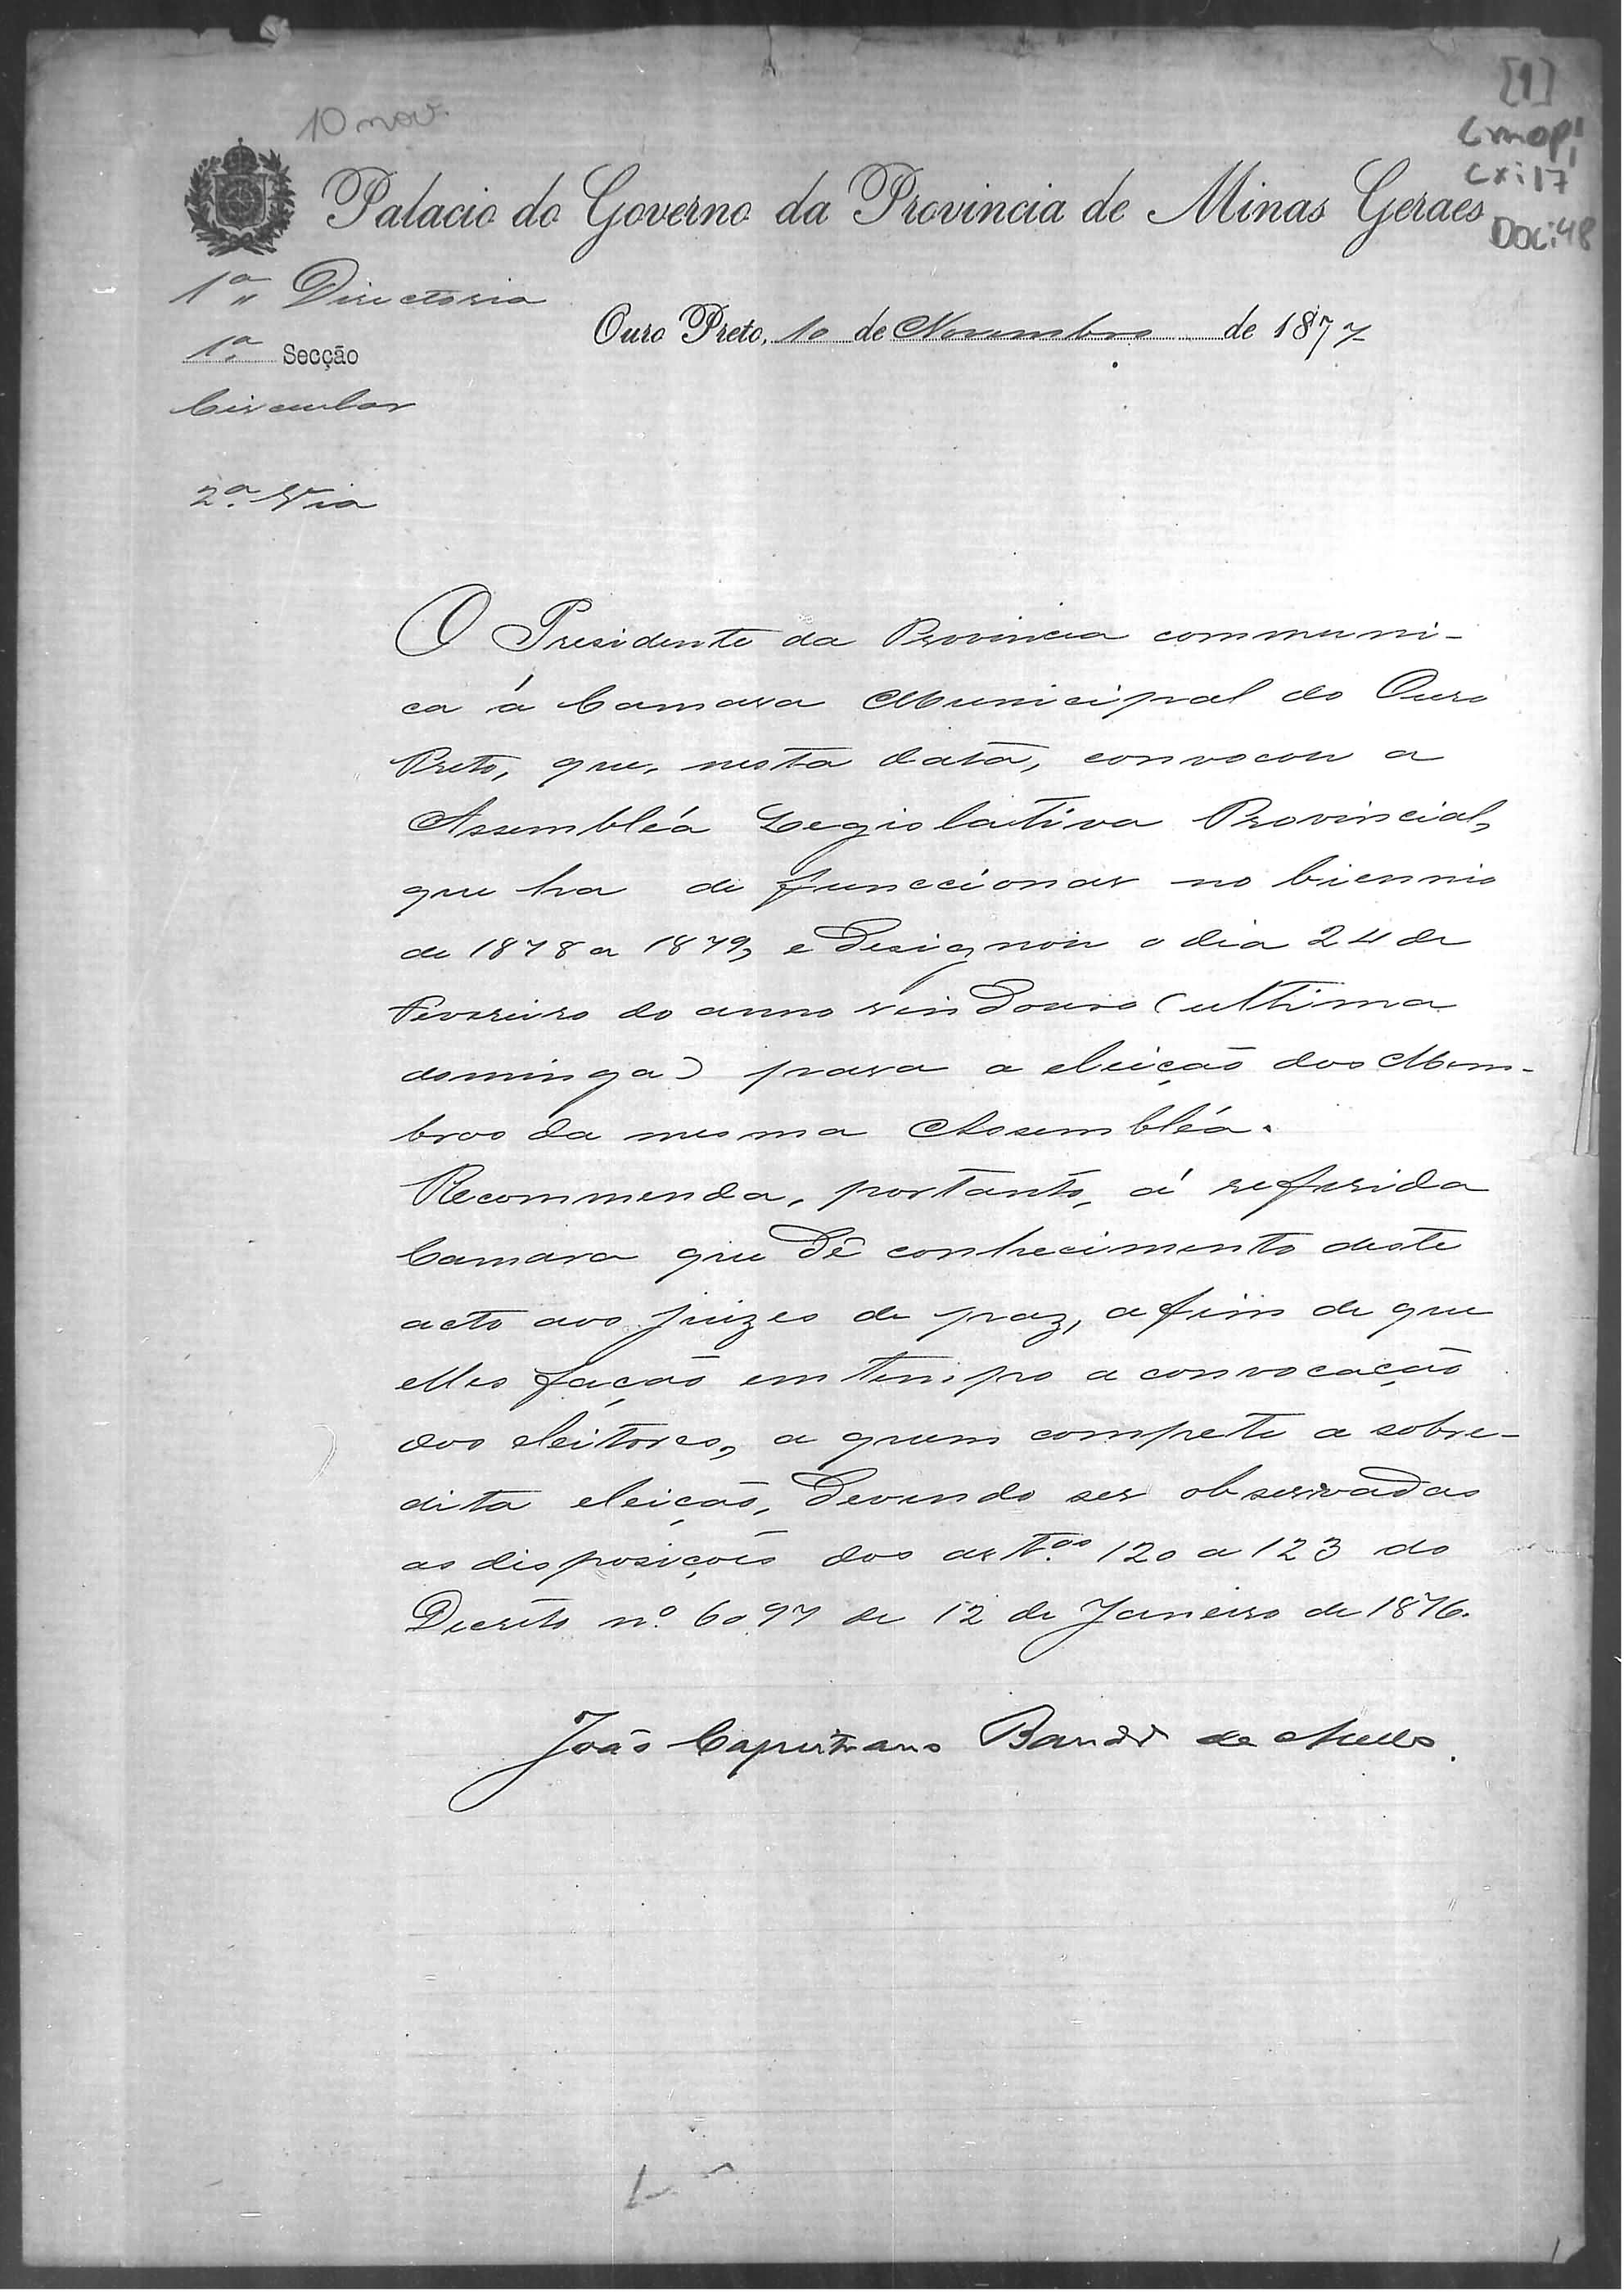 [1]
10 nov.
CMOP,
Cx: 17
Palacio do Governo da Provincia de Minas Geraes
Doc: 48
1ª Directoria
Ouro Preto, 10 de Novembro de 1877
1ª Secção
Circular
2ª Via
O Presidente da Provincia communi-
ca á Camara Municipal do Ouro
Preto, que, nesta data, convocou a
Assembléa Legislativa Provincial,
que ha de funccionar no biennio
de 1878 a 1879, e designou o dia 24 de
Fevereiro do anno vindouro (ultima
dominga) para a eleição dos Mem-
bros da mesma Assembléa.
Recommenda, portanto, á referida
Camara que dê conhecimento deste
acto aos juizes de paz, afim de que
elles fação em tempo a convocação
dos eleitores, a quem compete a sobre-
dita eleição, devendo ser observadas
as disposições dos artºs 120 a 123 do
Decreto nº 6097 de 12 de Janeiro de 1876.
João Capistrano Bandª de Mello.